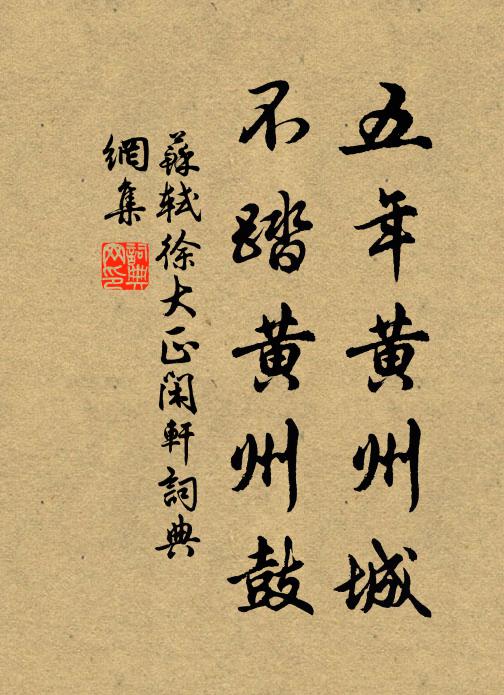 五年黄州城
不踏黄州鼓
蘇軾徐大正閑軒詞典
網集
詞典
網印